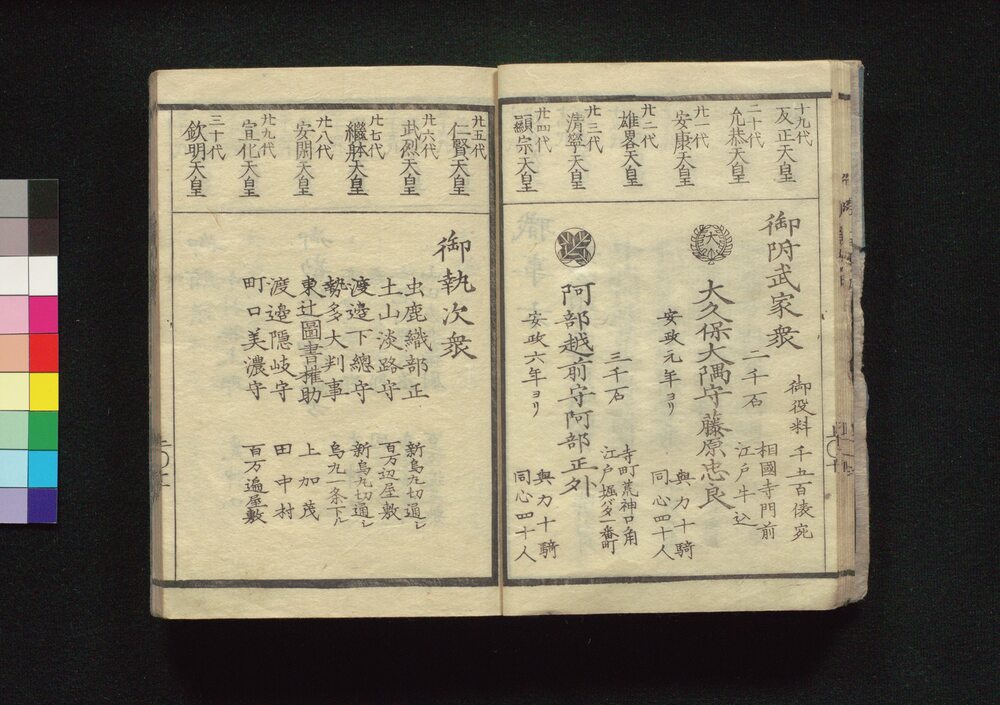 十九代
反正天皇
二十代
允恭天皇
廿一代
安康天皇
廿二代
雄畧天皇
廿三代
清寧天皇
廿四代
顕宗天皇
御附武家衆
御役料千五百俵宛
大久保大隅守藤原忠良
二千石
相國寺門前
江戸牛込
安政元年ヨリ
與力十騎
同心四十人
阿部越前守阿部正外
三千石
寺町荒神口角
江戸堀バタ一番町
安政六年ヨリ
與力十騎
同心四十人
廿五代
仁賢天皇
廿六代
武烈天皇
廿七代
繼躰天皇
廿八代
安閑天皇
廿九代
宣化天皇
三十代
欽明天皇
御執次衆
虫鹿織部正 新烏丸切通シ
土山淡路守 百万辺屋敷
渡邉下總守 新烏丸切通シ
勢多大判事 烏丸一条下ル
東辻圖書権助 上加茂
渡邉隠岐守 田中村
町口美濃守 百万遍屋敷